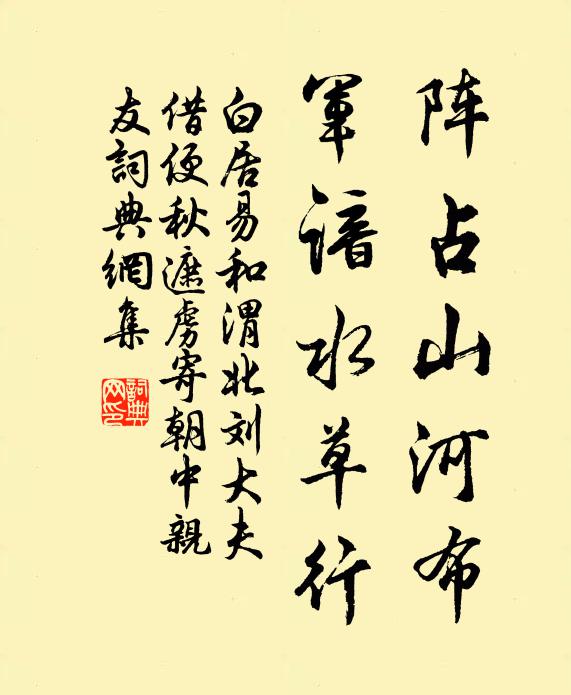 阵占山河布
軍谙水草行
白居易和渭北刘大夫
借便秋遮虏寄朝中親
友詞典網集
詞典网印